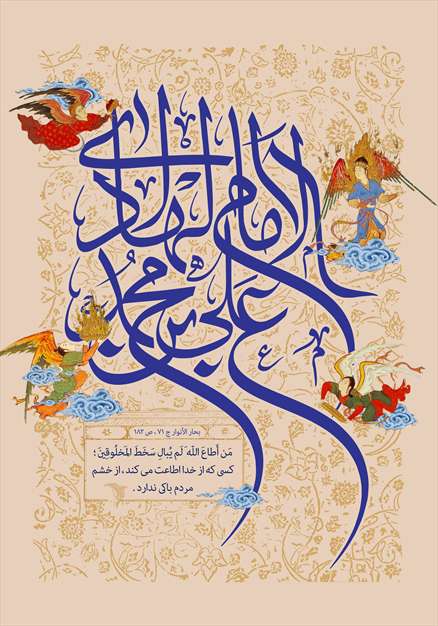 الإمام الهادي
علي بن محمد
بحار الأنوار ج ۷۱ ، ص ۱۸۲
مَن أطاعَ اللّهَ لَم يُبالِ سَخَطَ المَخلُوقِينَ ؛
کسی که از خدا اطاعت می کند ، از خشم
مردم باکی ندارد .